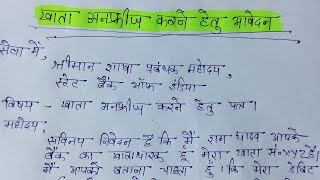 खाता अनफ्रीज करने हेतु आवेदन
सेवा में,
श्रीमान शाखा प्रबंधक महोदय,
स्टेट बैंक ऑफ इंडिया
विषय - खाता अनफ्रीज करने हेतु पत्र।
महोदय,
सविनय निवेदन है कि मैं राम यादव आपके
बैंक का खाताधारक हूं मेरा खाता सं०xyzहै।
मैं आपको बताना चाहता हूं कि मेरा डेबिट